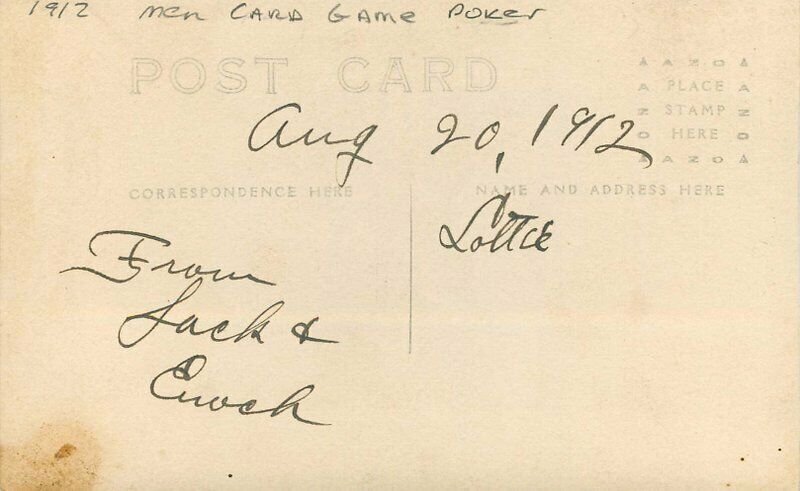 1912 Men CARD GAME POKER
POST CARD
AZO
PLACE
STAMP
HERE
AZO
Aug 20, 1912
CORRESPONDENCE HERE
NAME AND ADDRESS HERE
Lottie
From
Jack &
Enoch